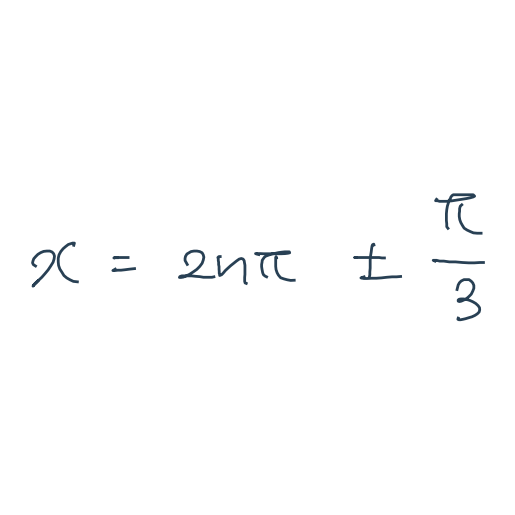 x = 2nπ ± π/3